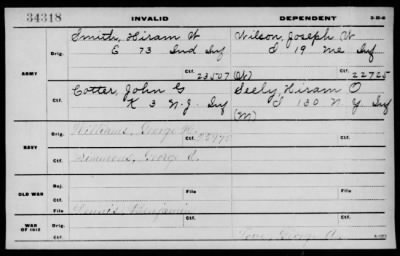 34318 INVALID DEPENDENT 3-216
Smith, Hiram W Wilson, Joseph W
ARMY Orig. E 73 Ind Inf I 19 Me Inf
Ctf. 23507 (W) Ctf. 22725
Cotter, John G Seely, Hiram O
Ctf. K 3 N.J. Inf I 130 N Y Inf
(M)
Orig. Williams, George Ctf. Ctf.
NAVY
Ctf. Simmons, George S.
Rej.
OLD WAR File File
Ctf.
Orig. Dennis, Benjamin Ctf. Ctf.
WAR OF 1812
Ctf. Love, George